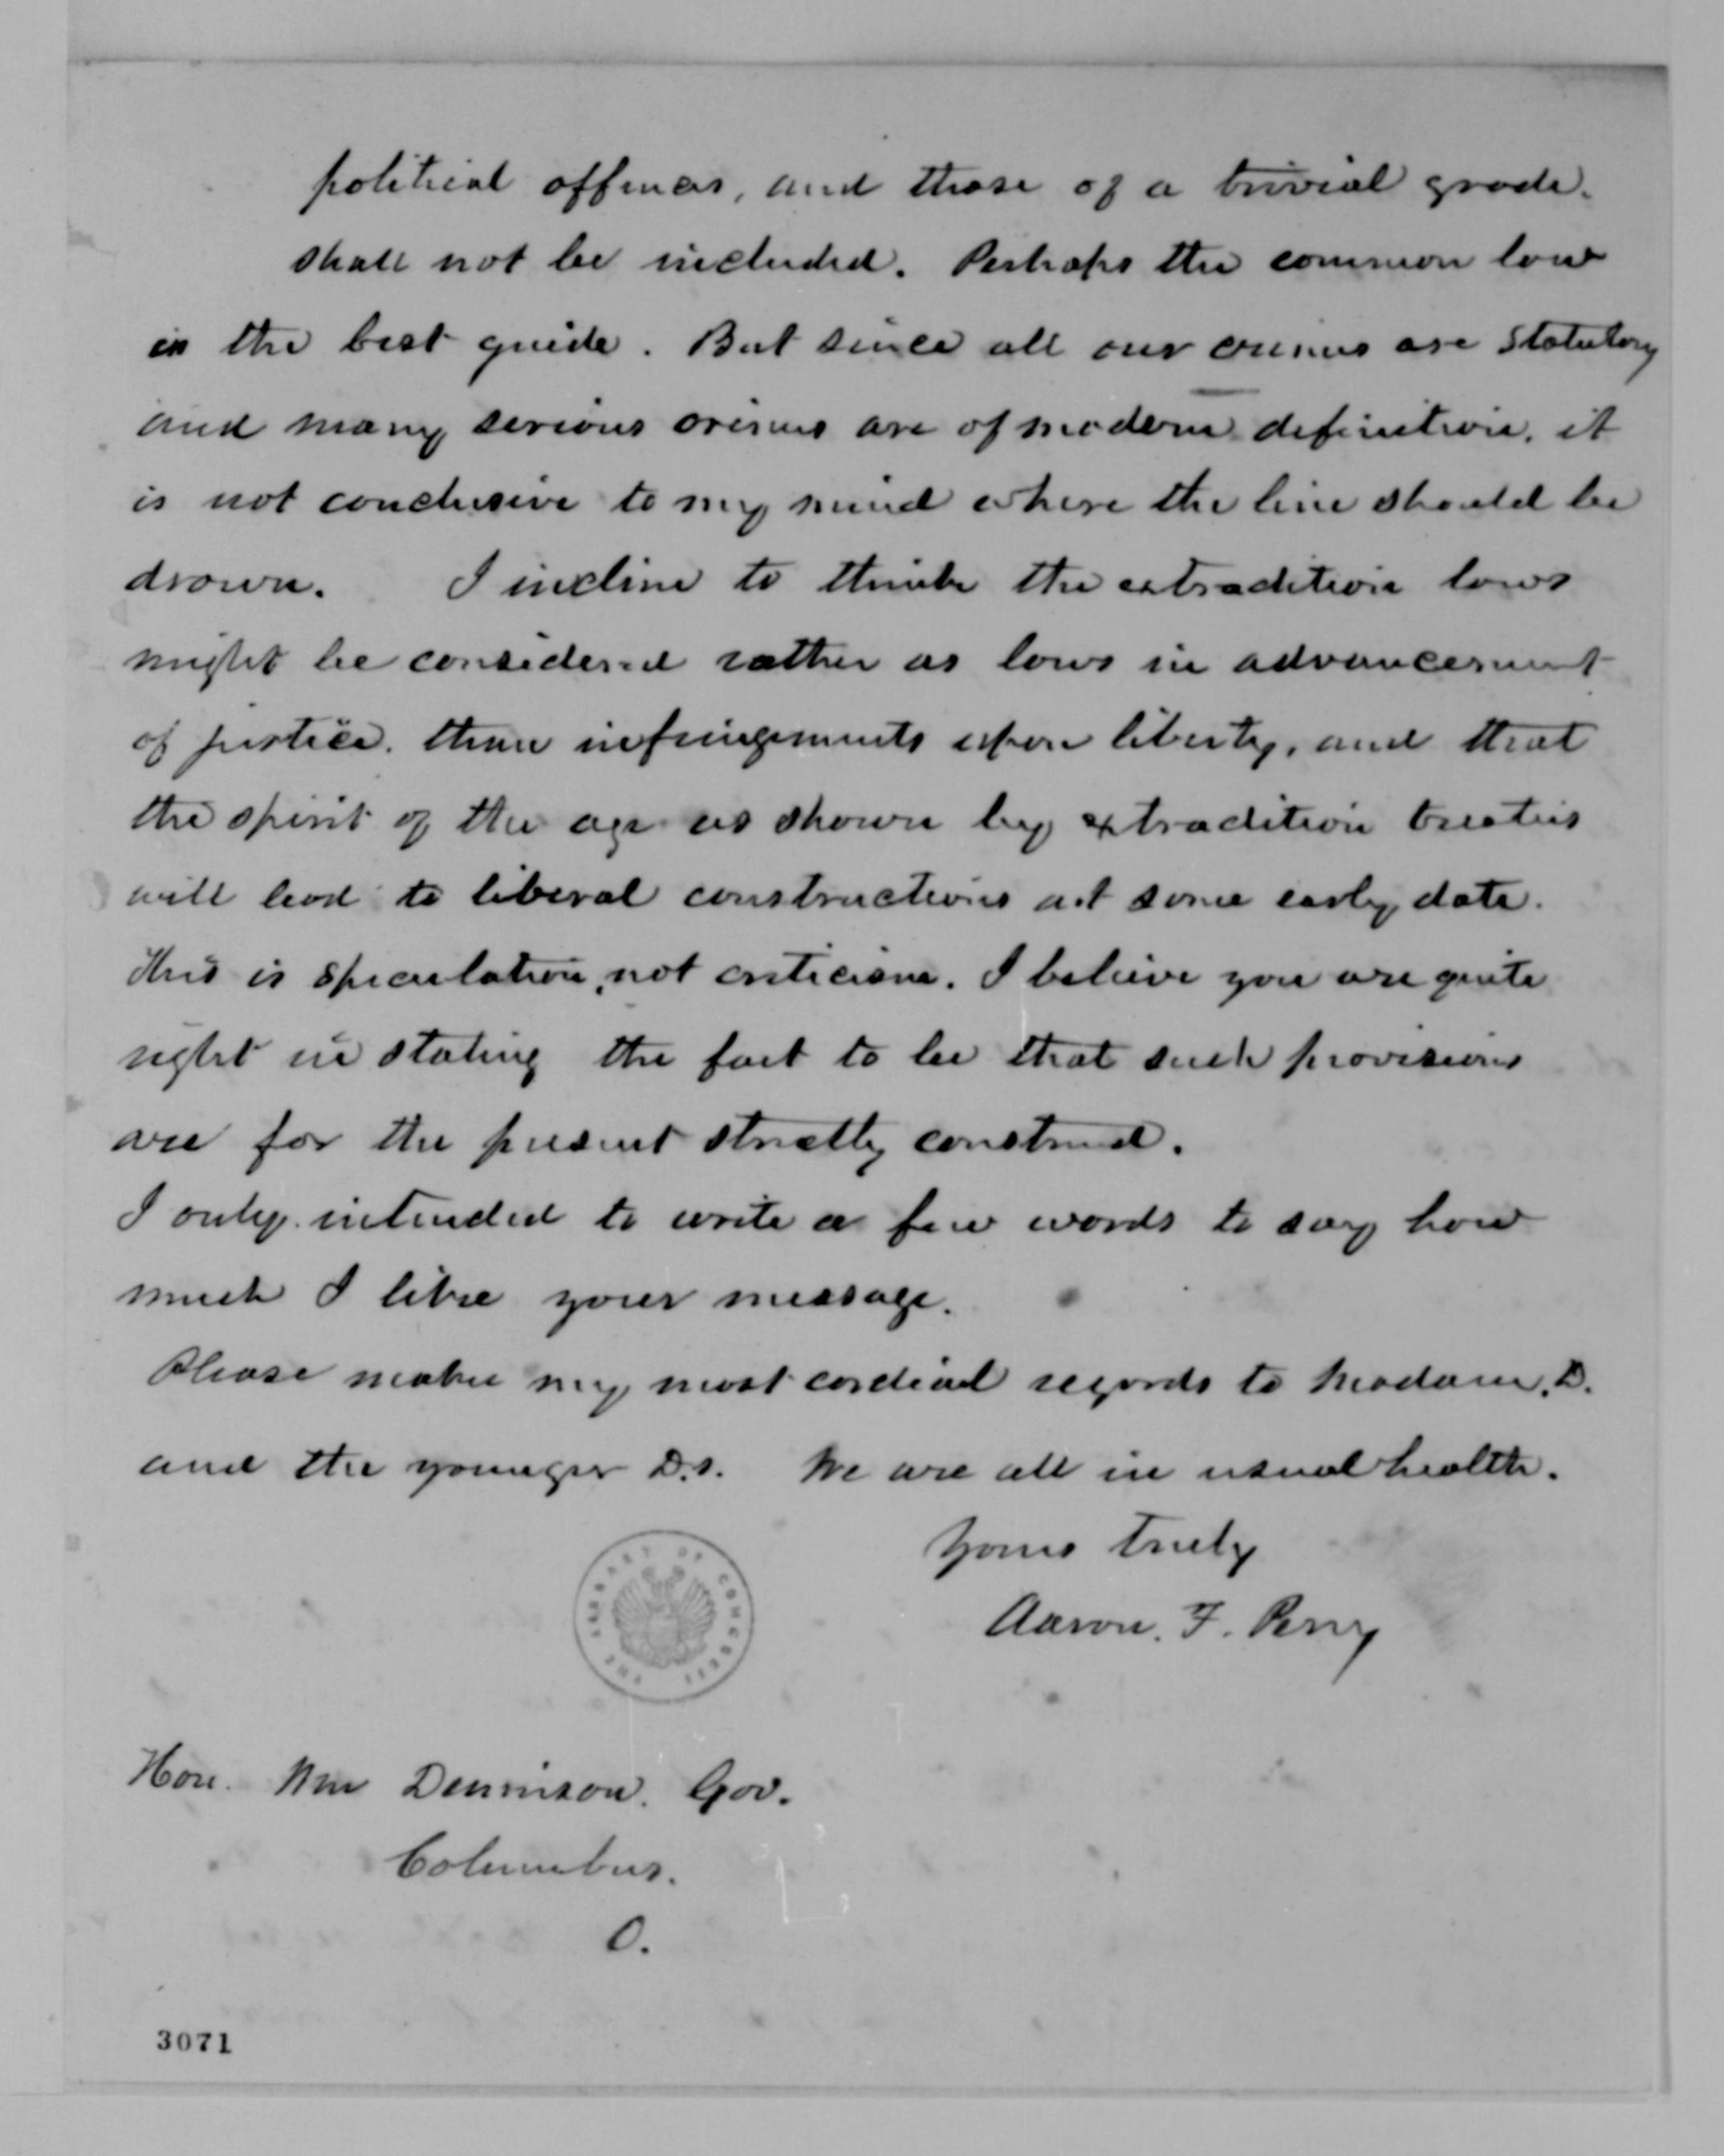 political offences, and those of a trivial grade.
shall not be included. Perhaps the common law
is the best guide. But since all our crimes are statutory
and many serious crimes are of modern definition, it
is not conclusive to my mind where the line should be
drawn. I incline to think the extradition laws
might be considered rather as laws in advancement
of justice, than infringements upon liberty, and that
the spirit of the age as shown by extradition treaties
will lead to liberal constructions at some early date.
This is speculation, not criticism. I believe you are quite
right in stating the fact to be that such provisions
are for the present strictly construed.
I only intended to write a few words to say how
much I like your message.
Please make my most cordial regards to Madam. D.
and the younger D.s. We are all in usual health.
Yours truly
Aaron. F. Perry
THE LIBRARY OF CONGRESS
Hon. Wm Dennison. Gov.
Columbus.
O.
3071